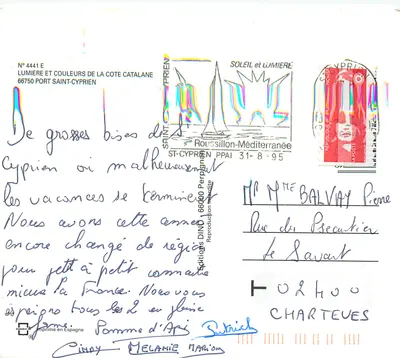 N° 4441 E
LUMIERE ET COULEURS DE LA COTE CATALANE
66750 PORT SAINT-CYPRIEN
De grosses bises de St
Cyprien où malheureusement
les vacances se terminent
Nous avons cette année
encore changé de région
pour petit à petit connaître
mieux la France. Nous vous
espérons tous les 2 en pleine
forme. Pomme d'Api Patrick
Cindy MELANIE Marion
Imprimé en Espagne
Editions DINO • 66000 Perpignan
SAINT-CYPRIEN
SOLEIL et LUMIERE
Roussillon-Méditerranée
ST-CYPRIEN PPAL 31-8-95
ST-CYPRIEN
Mr Mme BALVAY Pierre
Rue du
Le
02400
CHARTEVES